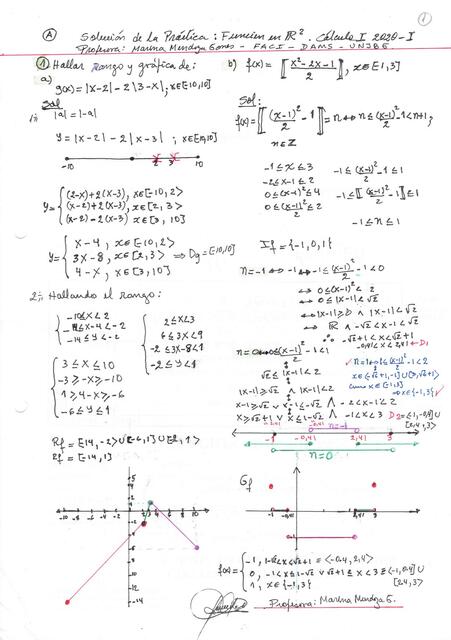 Ⓐ Solución de la Práctica: Función en ℝ². Cálculo I 2020-I
Profesora: Marina Mendoza Gomes - FACI - DAMS - UNJBG.
①
1) Hallar rango y gráfica de:
a)
g(x) = |x-2| - 2|3-x|, x∈[-10,10]
Sol
i) |a| = |-a|
y = |x-2| - 2|x-3| ; x∈[-10,10]
-10 2 3 10
y = { (2-x)+2(x-3), x∈[-10,2>
(x-2)+2(x-3), x∈[2,3>
(x-2)-2(x-3) x∈[3,10]
y = { x-4, x∈[-10,2>
3x-8, x∈[2,3> ⇒ Dg = [-10,10]
4-x, x∈[3,10]
2ii) Hallando el rango:
-10≤x<2
-14≤x-4<-2
-14≤y<-2
2≤x<3
6≤3x<9
-2≤3x-8<1
-2≤y<1
3≤x≤10
-3≥-x≥-10
1≥4-x≥-6
-6≤y≤1
Rg = [-14,-2>∪[-6,1]∪[-2,1>
Rg = [-14,1]
b) f(x) = ⟦(x²-2x-1)/2⟧, x∈[-1,3]
Sol:
f(x) = ⟦(x-1)²/2 - 1⟧ = n ⟺ n≤(x-1)²/2 - 1<n+1,
n∈Z
-1≤x≤3
-2≤x-1≤2
0≤(x-1)²≤4
0≤(x-1)²/2≤2
-1≤(x-1)²/2 - 1≤1
-1≤⟦(x-1)²/2 - 1⟧≤1
-1≤n≤1
If = {-1,0,1}
n=-1 ⟺ -1≤(x-1)²/2 - 1<0
⟺ 0≤(x-1)²<2
⟺ 0≤|x-1|<√2
⟺ |x-1|≥0 ∧ |x-1|<√2
⟺ ℝ ∧ -√2<x-1<√2
∴ -√2+1<x<√2+1
-0,41<x<2,41 ← D₁
n=0 ⟺ 0≤(x-1)²/2 - 1<1
√2≤|x-1|<2
|x-1|≥√2 ∧ |x-1|<2
x-1≥√2 ∨ x-1≤-√2 ∧ -2<x-1<2
x≥√2+1 ∨ x≤1-√2 ∧ -1<x<3
n=-1
-1 -0,41 2,41 3
n=0
Gf
f(x) = { -1, 1-√2<x<√2+1 = <-0.4, 2,4>
0, -1<x≤1-√2 ∨ √2+1≤x<3 = <-1,-0.4]∪
[2.4,3>
1, x∈{-1,3}
Profesora: Marina Mendoza G.